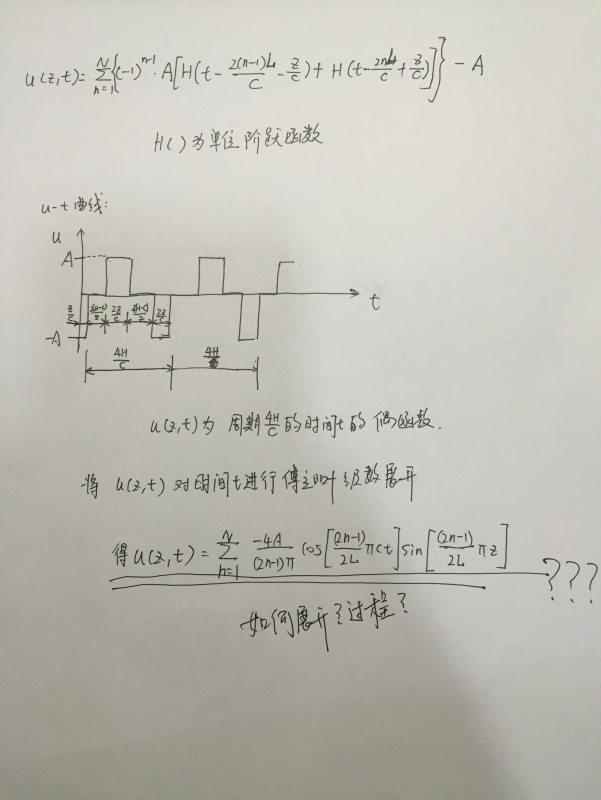 u(z,t)=\sum_{n=1}^{N}{(-1)^{n-1}·A[H(t-\frac{2(n-1)L}{C}-\frac{z}{C})+H(t-\frac{2nL}{C}+\frac{z}{C})]}-A
H( )为单位阶跃函数
u-t曲线:
u
A
t
\frac{z}{C} \frac{2z}{C} \frac{2z}{C}
-A
\frac{4H}{C} \frac{4H}{C}
u(z,t)为 周期\frac{4H}{C}的时间t的 偶函数.
将 u(z,t)对时间t进行傅立叶级数展开
得u(z,t)=\sum_{n=1}^{N} \frac{-4A}{(2n-1)π} cos[\frac{(2n-1)}{2L}πct]sin[\frac{(2n-1)}{2L}πz]
???
如何展开?过程?